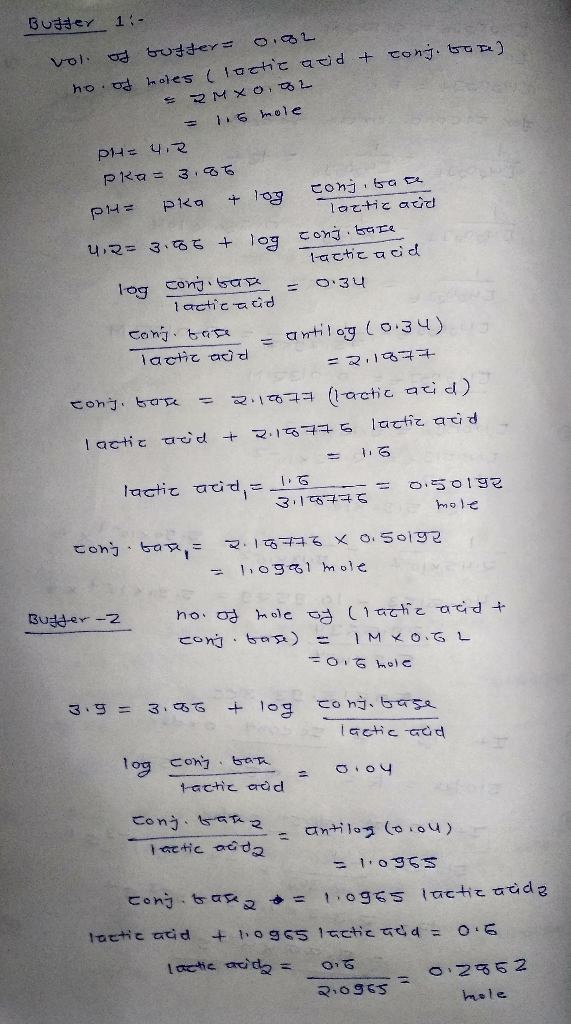 Buffer 1:-
Vol. of buffer = 0.8L
no. of moles (lactic acid + conj. base)
= 2M X 0.8L
= 1.6 mole
PH = 4.2
PKa = 3.86
PH = PKa + log conj. base / lactic acid
4.2 = 3.86 + log conj. base / lactic acid
log conj. base / lactic acid = 0.34
conj. base / lactic acid = antilog (0.34)
= 2.1877
conj. base = 2.1877 (lactic acid)
lactic acid + 2.18776 lactic acid
= 1.6
lactic acid, = 1.6 / 3.18776 = 0.50192 mole
conj. base, = 2.18776 X 0.50192
= 1.0981 mole
Buffer-2 no. of mole of (lactic acid +
conj. base) = 1M X 0.6 L
= 0.6 mole
3.9 = 3.86 + log conj. base / lactic acid
log conj. base / lactic acid = 0.04
conj. base 2 / lactic acid2 = antilog (0.04)
= 1.0965
conj. base 2 = 1.0965 lactic acid2
lactic acid + 1.0965 lactic acid = 0.6
lactic acid2 = 0.6 / 2.0965 = 0.2862 mole